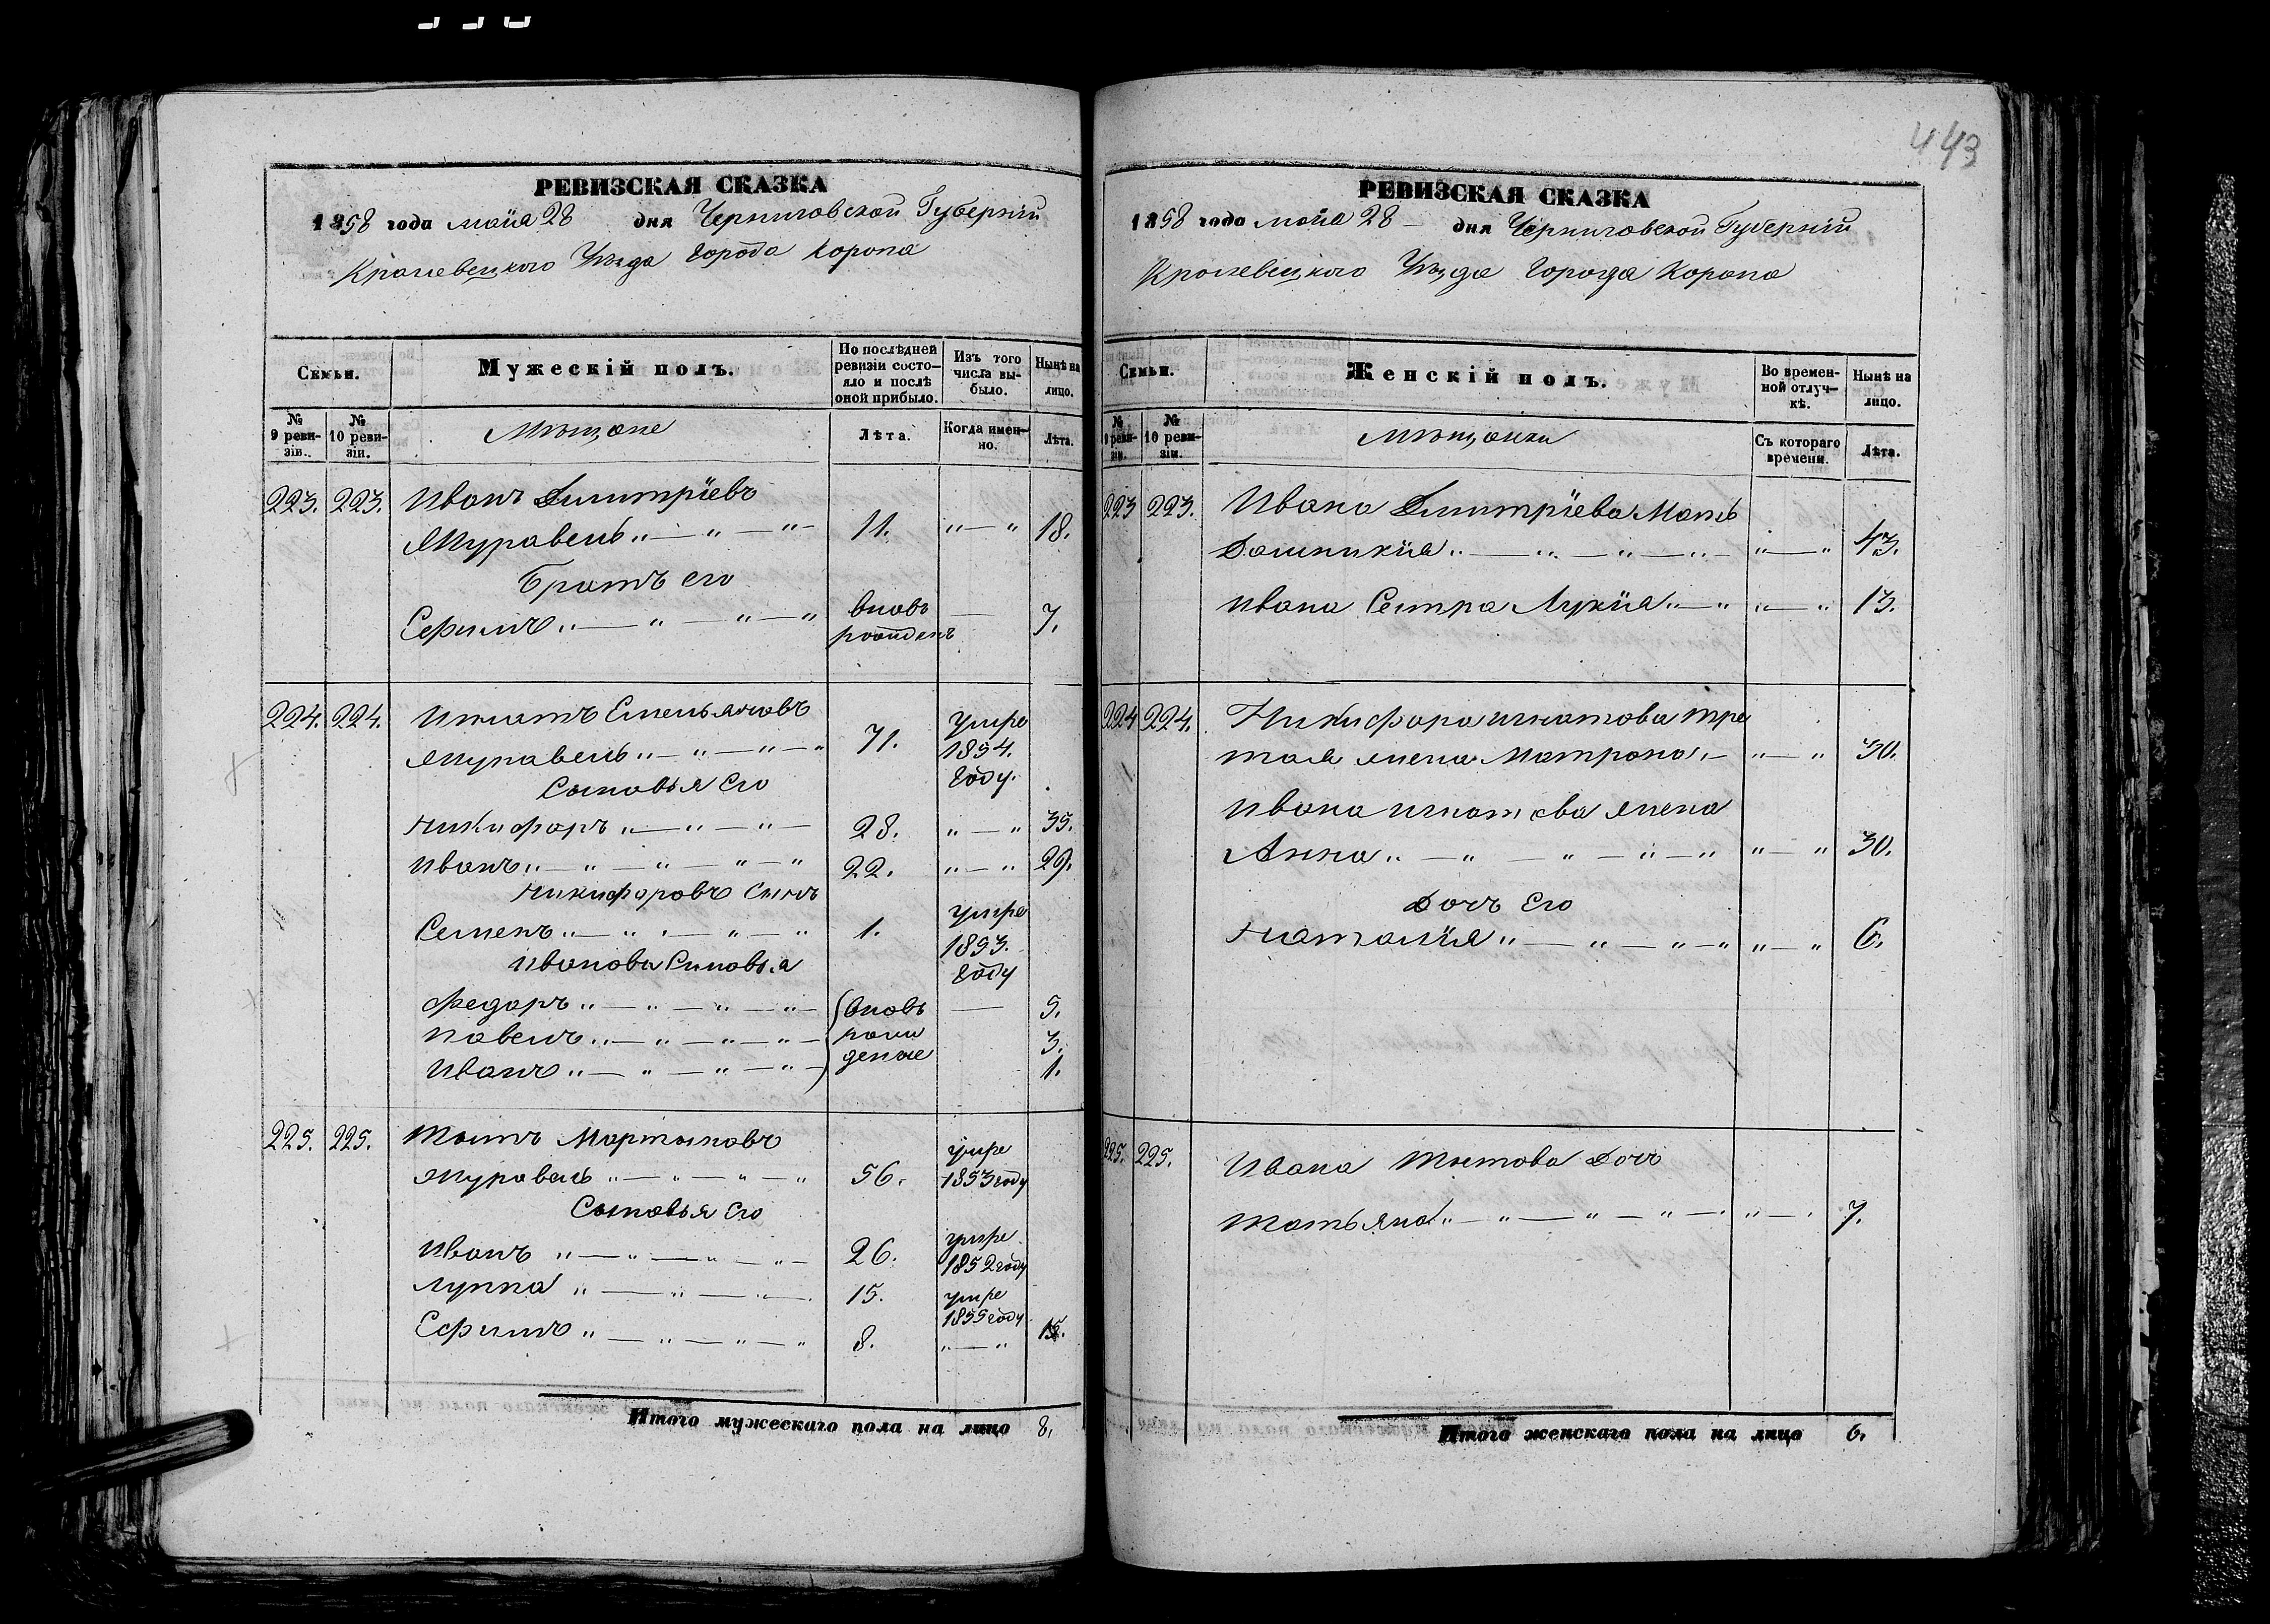 443
РЕВИЗСКАЯ СКАЗКА
1858 года маія 28 дня Черниговской Губерніи
Кролевецкого Уѣзда города Коропа
Семьи.
Мужескій полъ.
По послѣдней ревизіи состо-
яло и послѣ оной прибыло.
Изъ того числа вы-
было.
Нынѣ на лицо.
№ 9 реви-
зіи.
№ 10 реви-
зіи.
Мѣщане
Лѣта.
Когда имен-
но.
Лѣта.
223. 223. Иванъ Димитріевъ
Журавель „ — „ — „ — 11. „ — „ 18.
Братъ его
Ефимъ „ — „ — „ — „ вновь рожденъ — 7.
224. 224. Игнатъ Емельяновъ
Журавель „ — „ — „ — „ 71. умре 1854. году.
Сыновья его
Никифоръ „ — „ — „ — 28. „ — „ 35.
Иванъ „ — „ — „ — „ — „ 22. „ — „ 29.
Никифоровъ Сынъ
Семенъ „ — „ — „ — „ 1. умре 1853. году
Ивановы Сыновья
Федоръ „ — „ — „ — „ — вновь рожденые — 5.
Павелъ „ — „ — „ — „ — 3.
Иванъ „ — „ — „ — „ — 1.
225. 225. Титъ Мартыновъ
Журавель „ — „ — „ — „ 56. умре 1853 году
Сыновья его
Иванъ „ — „ — „ — „ — 26. умре 1852 году
Луппа „ — „ — „ — 15. умре 1855 году
Ефимъ „ — „ — „ — „ 8. „ — „ 15.
Итого мужескаго пола на лицо 8.
РЕВИЗСКАЯ СКАЗКА
1858 года маія 28 — дня Черниговской Губерніи
Кролевецкого Уѣзда города Коропа
Семьи.
Женскій полъ.
Во времен-
ной отлуч-
кѣ.
Нынѣ на лицо.
№ 9 реви-
зіи.
№ 10 реви-
зіи.
Мѣщанки
Съ котораго времени.
Лѣта.
223 223. Ивана Димитріева Мать
Домникія „ — „ — „ — „ — „ — „ 43.
Ивана Сестра Лукія „ — „ „ — „ 13.
224 224. Никифора Игнатова тре
тая жена Матрона „ — „ — „ 30.
Ивана Игнатова жена
Анна „ — „ — „ — „ — „ „ — „ 30.
Дочь Его
Наталія „ — „ — „ — „ „ — „ 6.
225. 225. Ивана Титова Дочь
Татьяна „ — „ — „ — „ — „ — „ 7.
Итого женскаго пола на лицо 6.